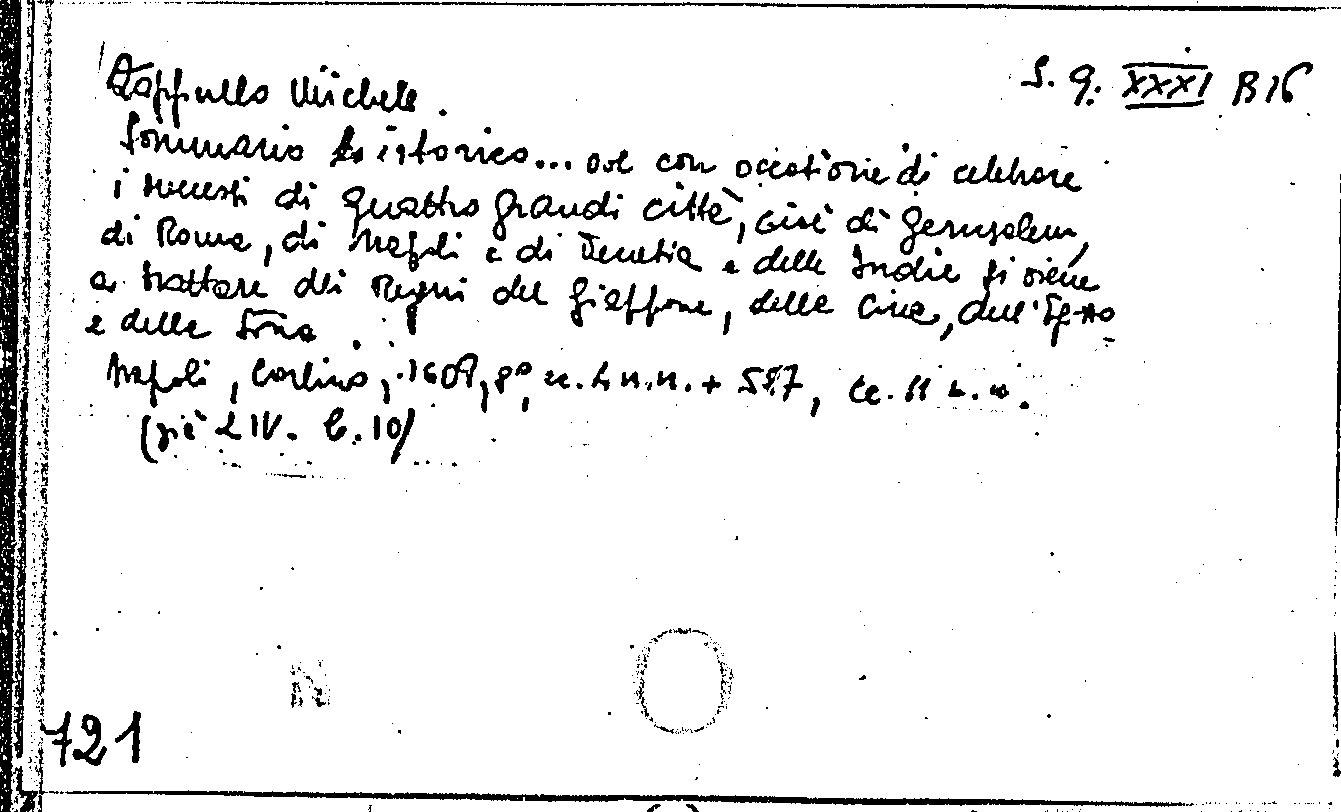 Zappullo Michele.
S. q. XXXI B 16
Sommario istorico... ove con occasione di celebrare
i successi di quattro grandi città, cioè di Gerusalem,
di Roma, di Napoli e di Venetia e delle Indie si viene
a trattare dei Regni del Giappone, della Cina, dell'Egitto
e della Soria.
Napoli, Carlino, 1609, 8°, cc. 4 n.n. + 587, cc. 11 n.n.
(già LIV. C. 10)
N
721